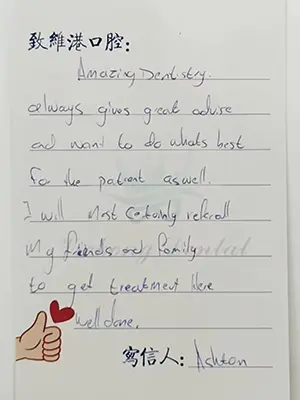 致維港口腔：
Amazing Dentistry.
always gives great advise
and want to do whats best
for the patient aswell.
I will Most Certainly referall
My friends and family
to get treatment here
well done.
寫信人： Ashton